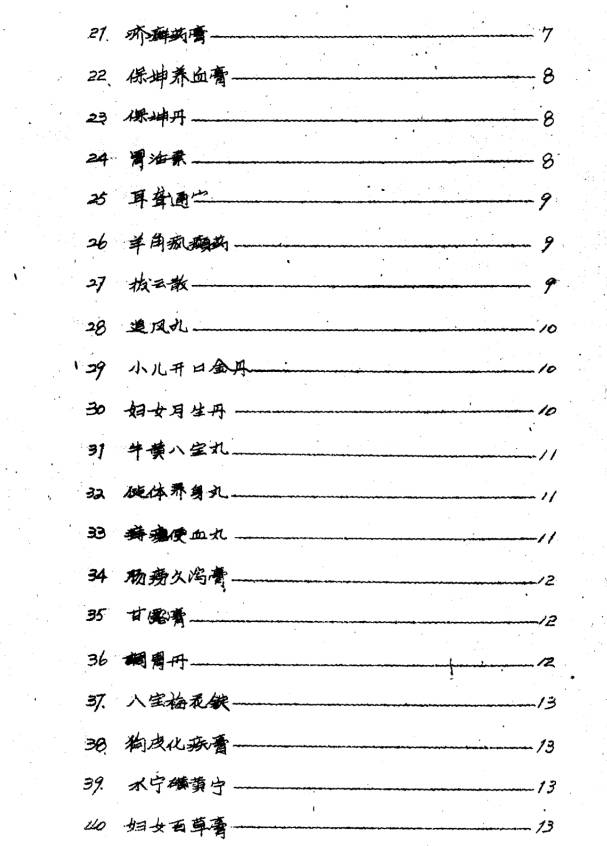 21. 疥癣药膏 7
22. 保坤养血膏 8
23. 保坤丹 8
24 胃活素 8
25 耳聋通 9
26 羊角疯癫药 9
27 拔云散 9
28 追风丸 10
29 小儿开口金丹 10
30 妇女月生丹 10
31 牛黄八宝丸 11
32 健体养身丸 11
33 痔瘘便血丸 11
34 肠痨久泻膏 12
35 甘露膏 12
36 调胃丹 12
37. 八宝梅花 13
38. 狗皮化膏 13
39. 水宁磺黄宁 13
40 妇女百草膏 13